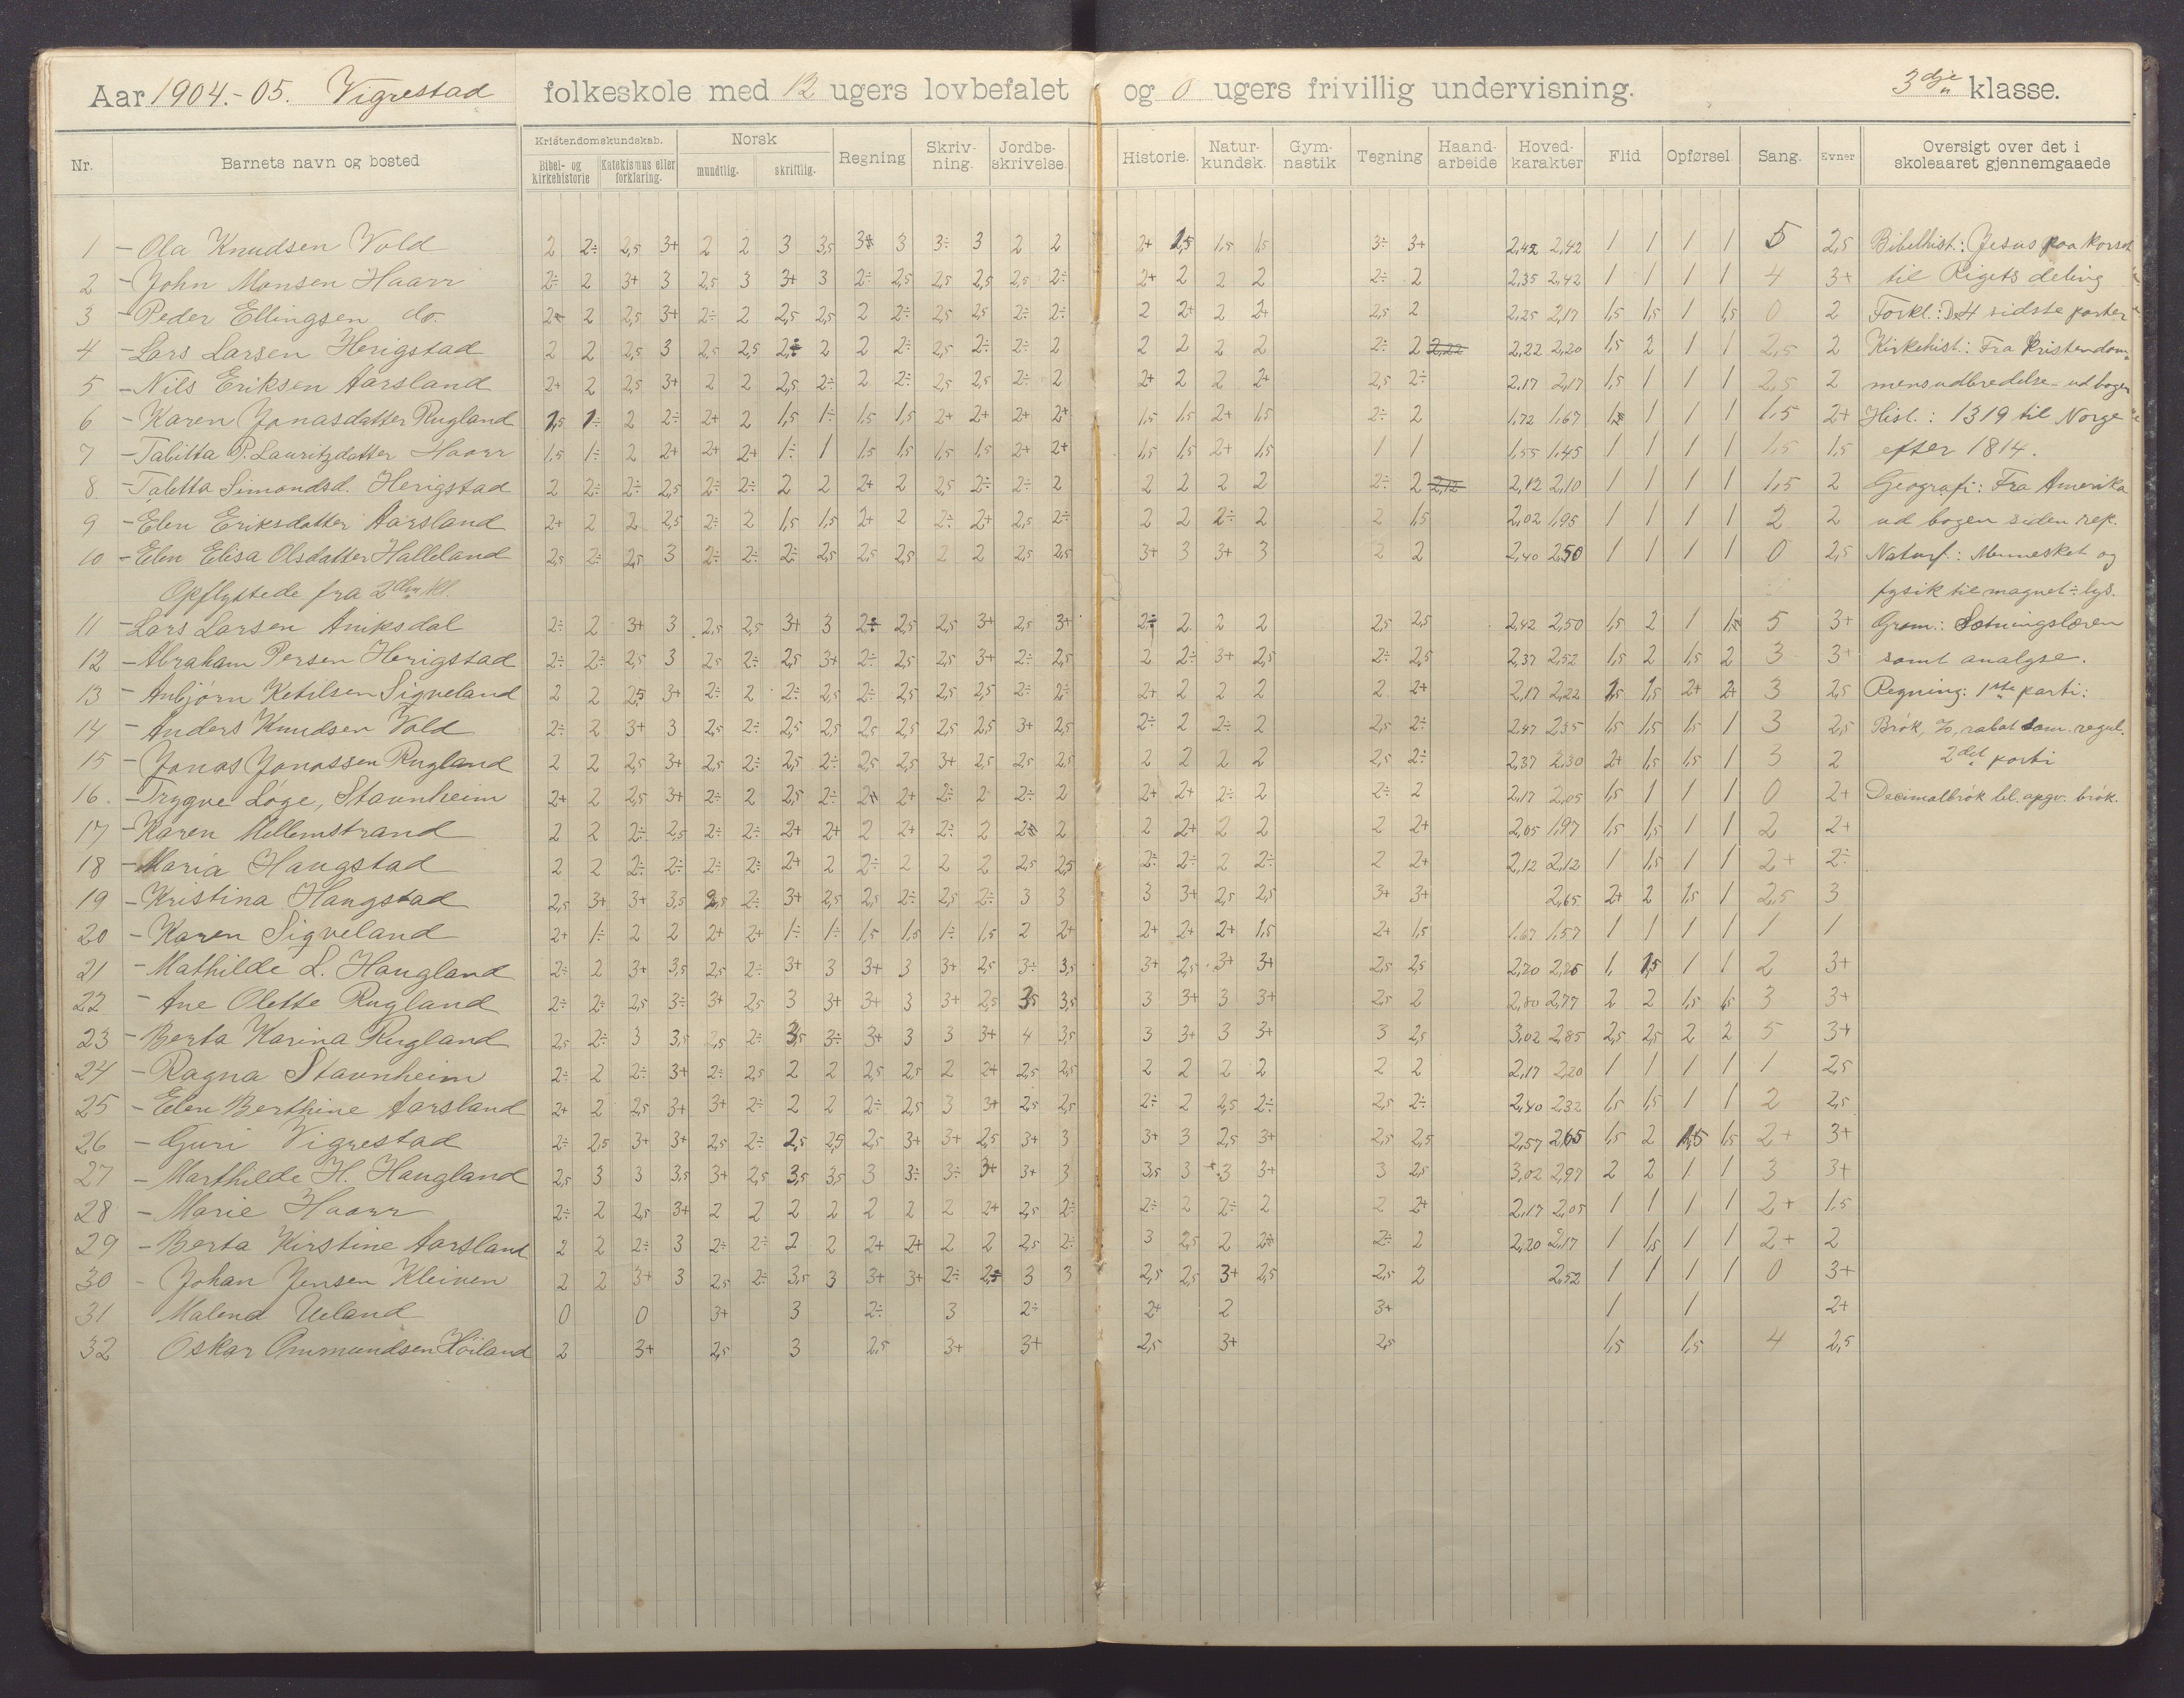 Aar 1904.-05. Vigrestad folkeskole med 12 ugers lovbefalet og 0 ugers frivillig undervisning. 3dje klasse.
Nr. Barnets navn og bosted Kristendomskundskab. Bibel- og kirkehistorie Katekismus eller forklaring. Norsk mundtlig. skriftlig. Regning Skriv-ning. Jordbe-skrivelse Historie. Natur-kundsk. Gym-nastik Tegning Haand-arbeide Hoved-karakter Flid Opførsel Sang. Evner Oversigt over det i skoleaaret gjennemgaaede
1 - Ola Knudsen Vold 2 2÷ 2,5 3+ 2 2 3 3,5 3+ 3 3÷ 3 2 2 2+ 1,5 1,5 1,5 3÷ 3+ 2,42 2,42 1 1 1 1 5 2,5 Bibelhist.: Jesus paa korset
2 - John Monsen Haarr 2÷ 2 3+ 3 2,5 3 3+ 3 2÷ 2,5 2,5 2,5 2,5 2÷ 2+ 2 2 2 2÷ 2 2,35 2,42 1 1 1 1 4 3+ til Rigets deling
3 - Peder Ellingsen do. 2 2 2,5 3+ 2÷ 2 2,5 2,5 2 2÷ 2,5 2,5 2÷ 2÷ 2 2+ 2 2+ 2,5 2 2,25 2,17 1,5 1,5 1 1,5 0 2 Forkl.: De 4 sidste parter
4 - Lars Larsen Herigstad 2 2 2,5 3 2,5 2,5 2÷ 2 2 2÷ 2,5 2÷ 2÷ 2 2 2 2 2 2÷ 2 2,22 2,22 2,20 1,5 2 1 1 2,5 2 Kirkehist.: Fra Kristendom-
5 - Nils Eriksen Aarsland 2+ 2 2,5 3+ 2 2 2,5 2÷ 2 2÷ 2,5 2,5 2÷ 2 2+ 2 2 2+ 2,5 2÷ 2,17 2,17 1,5 1 1 1 2,5 2 mens udbredelse ud bogen
6 - Karen Jonasdatter Rugland 1,5 1÷ 2 2÷ 2+ 2 1,5 1÷ 1,5 1,5 2+ 2+ 2+ 2+ 1,5 1,5 2+ 1,5 2÷ 2 1,72 1,67 1,5 1 1 1 1,5 2+ Hist.: 1319 til Norge
7 - Talitta P. Lauritzdatter Haarr 1,5 1÷ 2 2+ 2+ 2+ 1÷ 1 1,5 1,5 1,5 1,5 2+ 2+ 1,5 1,5 2+ 1,5 1 1 1,55 1,45 1 1 1 1 1,5 1,5 efter 1814.
8 - Taletta Simondsd. Herigstad 2 2÷ 2÷ 2,5 2÷ 2÷ 2 2 2+ 2 2,5 2÷ 2÷ 2 2 2 2 2 2÷ 2 2,12 2,12 2,10 1 1 1 1 1,5 2 Geografi: Fra Amerika
9 - Elen Eriksdatter Aarsland 2+ 2 2 2,5 2÷ 2 1,5 1,5 2+ 2 2÷ 2+ 2,5 2÷ 2 2 2÷ 2 2 1,5 2,02 1,95 1 1 1 1 2 2 ud bogen siden rep.
10 - Elen Elisa Olsdatter Halleland 2,5 2÷ 2,5 3 2÷ 2÷ 2÷ 2,5 2,5 2,5 2 2 2,5 2,5 3+ 3 3+ 3 2 2 2,40 2,50 1 1 1 1 0 2,5 Naturf.: Mennesket og
Opflyttede fra 2den kl. fysik til magnet÷lys.
11 - Lars Larsen Aniksdal 2÷ 2 3+ 3 2,5 2,5 3+ 3 2÷ 2,5 2,5 3+ 2,5 3+ 2÷ 2 2 2 2,5 2,5 2,42 2,50 1,5 2 1 1,5 5 3+ Gram.: Sætningslæren
12 - Abraham Persen Herigstad 2÷ 2÷ 2,5 3 2,5 2÷ 2,5 3+ 2÷ 2,5 2,5 3+ 2÷ 2,5 2 2÷ 3+ 2,5 2÷ 2,5 2,37 2,52 1,5 2 1,5 2 3 3+ samt analyse.
13 - Anbjørn Ketilsen Sigveland 2 2 2,5 3+ 2÷ 2 2÷ 2,5 2÷ 2,5 2,5 2,5 2÷ 2÷ 2+ 2 2 2 2 2+ 2,17 2,22 1,5 1,5 2+ 2+ 3 2,5 Regning: 1ste parti:
14 - Anders Knudsen Vold 2÷ 2 3+ 3 2,5 2÷ 2,5 2,5 2,5 2,5 2,5 2,5 3+ 2,5 2÷ 2 2÷ 2 2,5 2÷ 2,47 2,35 1,5 1,5 1,5 1 3 2,5 Brøk, %, rabat sam. regul.
15 - Jonas Jonassen Rugland 2 2 2,5 3+ 2,5 2÷ 2,5 2÷ 2,5 2,5 3+ 2,5 2,5 2,5 2 2 2 2 2,5 2÷ 2,37 2,30 2+ 1,5 1,5 1 3 2 2det parti
16. - Trygve Løge, Stavnheim 2+ 2 2,5 3+ 2÷ 2 2,5 2÷ 2 2+ 2÷ 2 2÷ 2 2+ 2+ 2÷ 2 2÷ 2 2,17 2,05 1,5 1 1 1 0 2+ Decimalbrøk bl. opgv. brøk.
17 - Karen Mellemstrand 2 2 2÷ 2,5 2÷ 2÷ 2+ 2+ 2 2+ 2÷ 2 2 2 2 2+ 2 2 2 2+ 2,05 1,97 1,5 1,5 1 1 2 2+
18 - Maria Haugstad 2 2 2÷ 2÷ 2÷ 2÷ 2+ 2 2÷ 2 2 2 2,5 2,5 2÷ 2÷ 2 2÷ 2 2+ 2,12 2,12 1 1,5 1 1 2+ 2÷
19 - Kristina Haugstad 2,5 3+ 3+ 3,5 2,5 2÷ 3+ 2,5 2,5 2÷ 2,5 2÷ 3 3 3 3+ 2,5 2,5 3+ 3+ 2,65 2+ 2 1,5 1 2,5 3
20 - Karen Sigveland 2+ 1÷ 2 2 2+ 2+ 1÷ 1÷ 1,5 1,5 1÷ 1,5 2 2+ 2+ 2+ 2+ 1,5 2+ 1,5 1,67 1,57 1 1 1 1 1 1
21 - Mathilde L. Haugland 2÷ 2 3+ 3,5 2,5 2÷ 3+ 3 3+ 3 3+ 2,5 3÷ 3,5 3+ 2,5 3+ 3+ 2,5 2,5 2,70 2,75 1, 1,5 1 1 2 3+
22 - Ane Olette Rugland 2÷ 2÷ 2,5 3÷ 3+ 2,5 3 3+ 3+ 3 3+ 2,5 3,5 3,5 3 3+ 3 3+ 2,5 2 2,80 2,77 2 2 1,5 1,5 3 3+
23 - Berta Karina Rugland 2,5 2÷ 3 3,5 2,5 2÷ 3,5 3÷ 3+ 3 3 3+ 4 3,5 3 3+ 3 3+ 3 2,5 3,02 2,85 2,5 2,5 2 2 5 3+
24 - Ragna Stavnheim 2÷ 2 2÷ 3+ 2÷ 2,5 2 2 2,5 2,5 2 2+ 2,5 2,5 2 2 2 2 2 2 2,17 2,20 1 1 1 1 1 2,5
25 - Elen Berthine Aarsland 2+ 2 2,5 3+ 3+ 2÷ 2 2 2÷ 2,5 3 3+ 2,5 2,5 2÷ 2 2,5 2÷ 2,5 2÷ 2,40 2,32 1,5 1,5 1 1 2 2,5
26 - Guri Vigrestad 2÷ 2,5 3+ 3+ 2,5 2÷ 2,5 2,5 2,5 3+ 3+ 2,5 3+ 3 3+ 3 2,5 3+ 2,5 2,5 2,57 2,65 1,5 2 1,5 1,5 2+ 3+
27 - Marthilde H. Haugland 2,5 3 3 3,5 3+ 2,5 3,5 3,5 3 3÷ 3÷ 3+ 3+ 3 3,5 3 3 3+ 3 2,5 3,02 2,97 2 2 1 1 3 3+
28 - Marie Haarr 2÷ 2 2,5 3+ 2 2 2 2 2 2 2 2+ 2,5 2÷ 2÷ 2 2÷ 2 2 2+ 2,17 2,05 1 1 1 1 2+ 1,5
29 - Berta Kirstine Aarsland 2 2 2÷ 3 2÷ 2÷ 2 2 2+ 2+ 2 2 2,5 2÷ 3 2,5 2 2÷ 2÷ 2 2,20 2,17 1 1,5 1 1 2+ 2
30 - Johan Jensen Kleiven 2 2 3+ 3 2,5 2÷ 3,5 3 3+ 3+ 2÷ 2÷ 3 3 2,5 2,5 3+ 2,5 2,5 2 2,52 1 1 1 1 0 3+
31 Malena Ueland 0 0 3+ 3 2÷ 3 2÷ 2+ 2 3+ 1 1 2+
32 Oskar Ommundsen Høiland 2 3+ 2,5 3 2,5 3+ 3+ 2,5 3+ 2,5 1,5 1,5 4 2,5